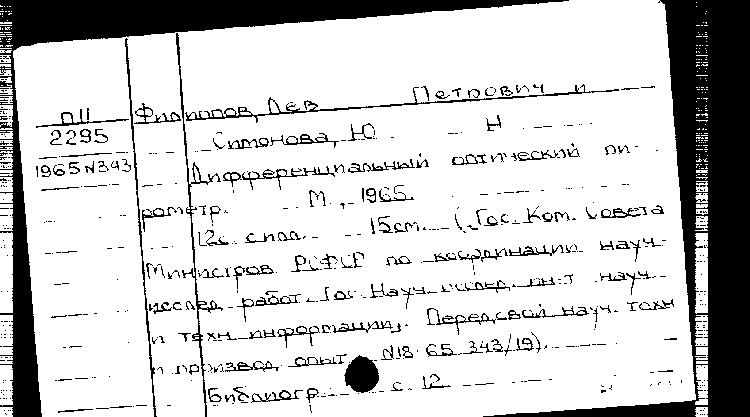 П11
2295
1965 N343
Филиппов, Лев Петрович и
Симонова, Ю Н
Дифференциальный оптический пи-
рометр. М., 1965.
12с. с илл. 15см. (Гос. Ком. Совета
Министров РСФСР по координации науч-
исслед. работ. Гос. Науч. исслед. ин-т науч.
и техн. информации). Передовой науч. техн
и производ. опыт. N18-65-343/19).
Библиогр. с. 12